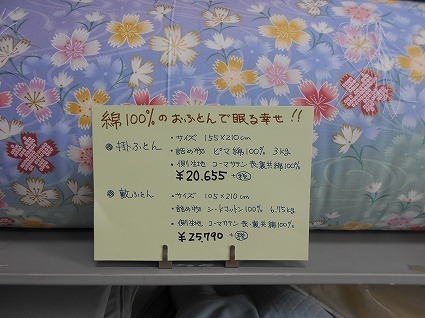 綿100%のおふとんで眠る幸せ!!
◎ 掛ふとん ・サイズ 155×210cm
・詰め物 ピマ綿100% 3kg
・側生地 コーマサテン 表・裏共綿100%
¥20.655 +税
◎ 敷ふとん ・サイズ 105×210cm
・詰め物 シードコットン100% 6.75kg
・側生地 コーマサテン 表・裏共綿100%
¥25,790 +税